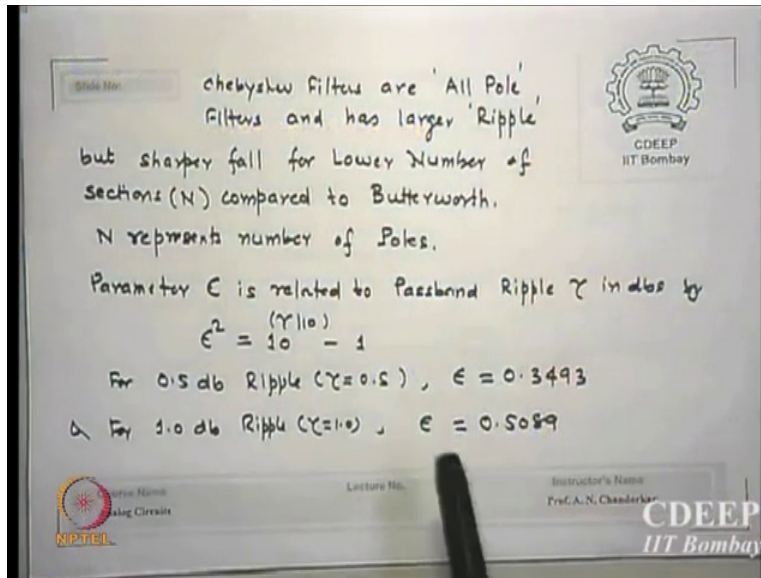 Slide No:
Chebyshev Filters are 'All Pole'
Filters and has larger 'Ripple'
but sharper fall for Lower Number of
sections (N) compared to Butterworth.
N represents number of Poles.
Parameter ε is related to Passband Ripple γ in dbs by
ε² = 10^(γ/10) - 1
For 0.5 db Ripple (γ=0.5), ε = 0.3493
& For 1.0 db Ripple (γ=1.0), ε = 0.5089
CDEEP
IIT Bombay
Course Name
Analog Circuits
Lecture No.
Instructor's Name
Prof. A. N. Chandorkar
NPTEL
CDEEP
IIT Bombay